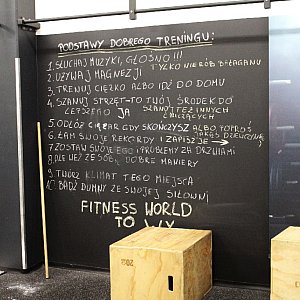 PODSTAWY DOBREGO TRENINGU:
1. SŁUCHAJ MUZYKI, GŁOŚNO!!!
TYLKO NIE RÓB BAŁAGANU
2. UŻYWAJ MAGNEZJI
3. TRENUJ CIĘŻKO ALBO IDŹ DO DOMU
4. SZANUJ SPRZĘT-TO TWÓJ ŚRODEK DO
LEPSZEGO JA
SZANUJ TEŻ INNYCH
ĆWICZĄCYCH
5. ODŁÓŻ CIĘŻAR GDY SKOŃCZYSZ ALBO POPROŚ
JAKĄŚ DZIEWCZYNĘ
6. ŁAM SWOJE REKORDY I ZAPISZ JE
7. ZOSTAW SWOJE EGO I PROBLEMY ZA DRZWIAMI
8. ALE WEŹ ZE SOBĄ DOBRE MANIERY
9. TWÓRZ KLIMAT TEGO MIEJSCA
10. BĄDŹ DUMNY ZE SWOJEJ SIŁOWNI
FITNESS WORLD
TO